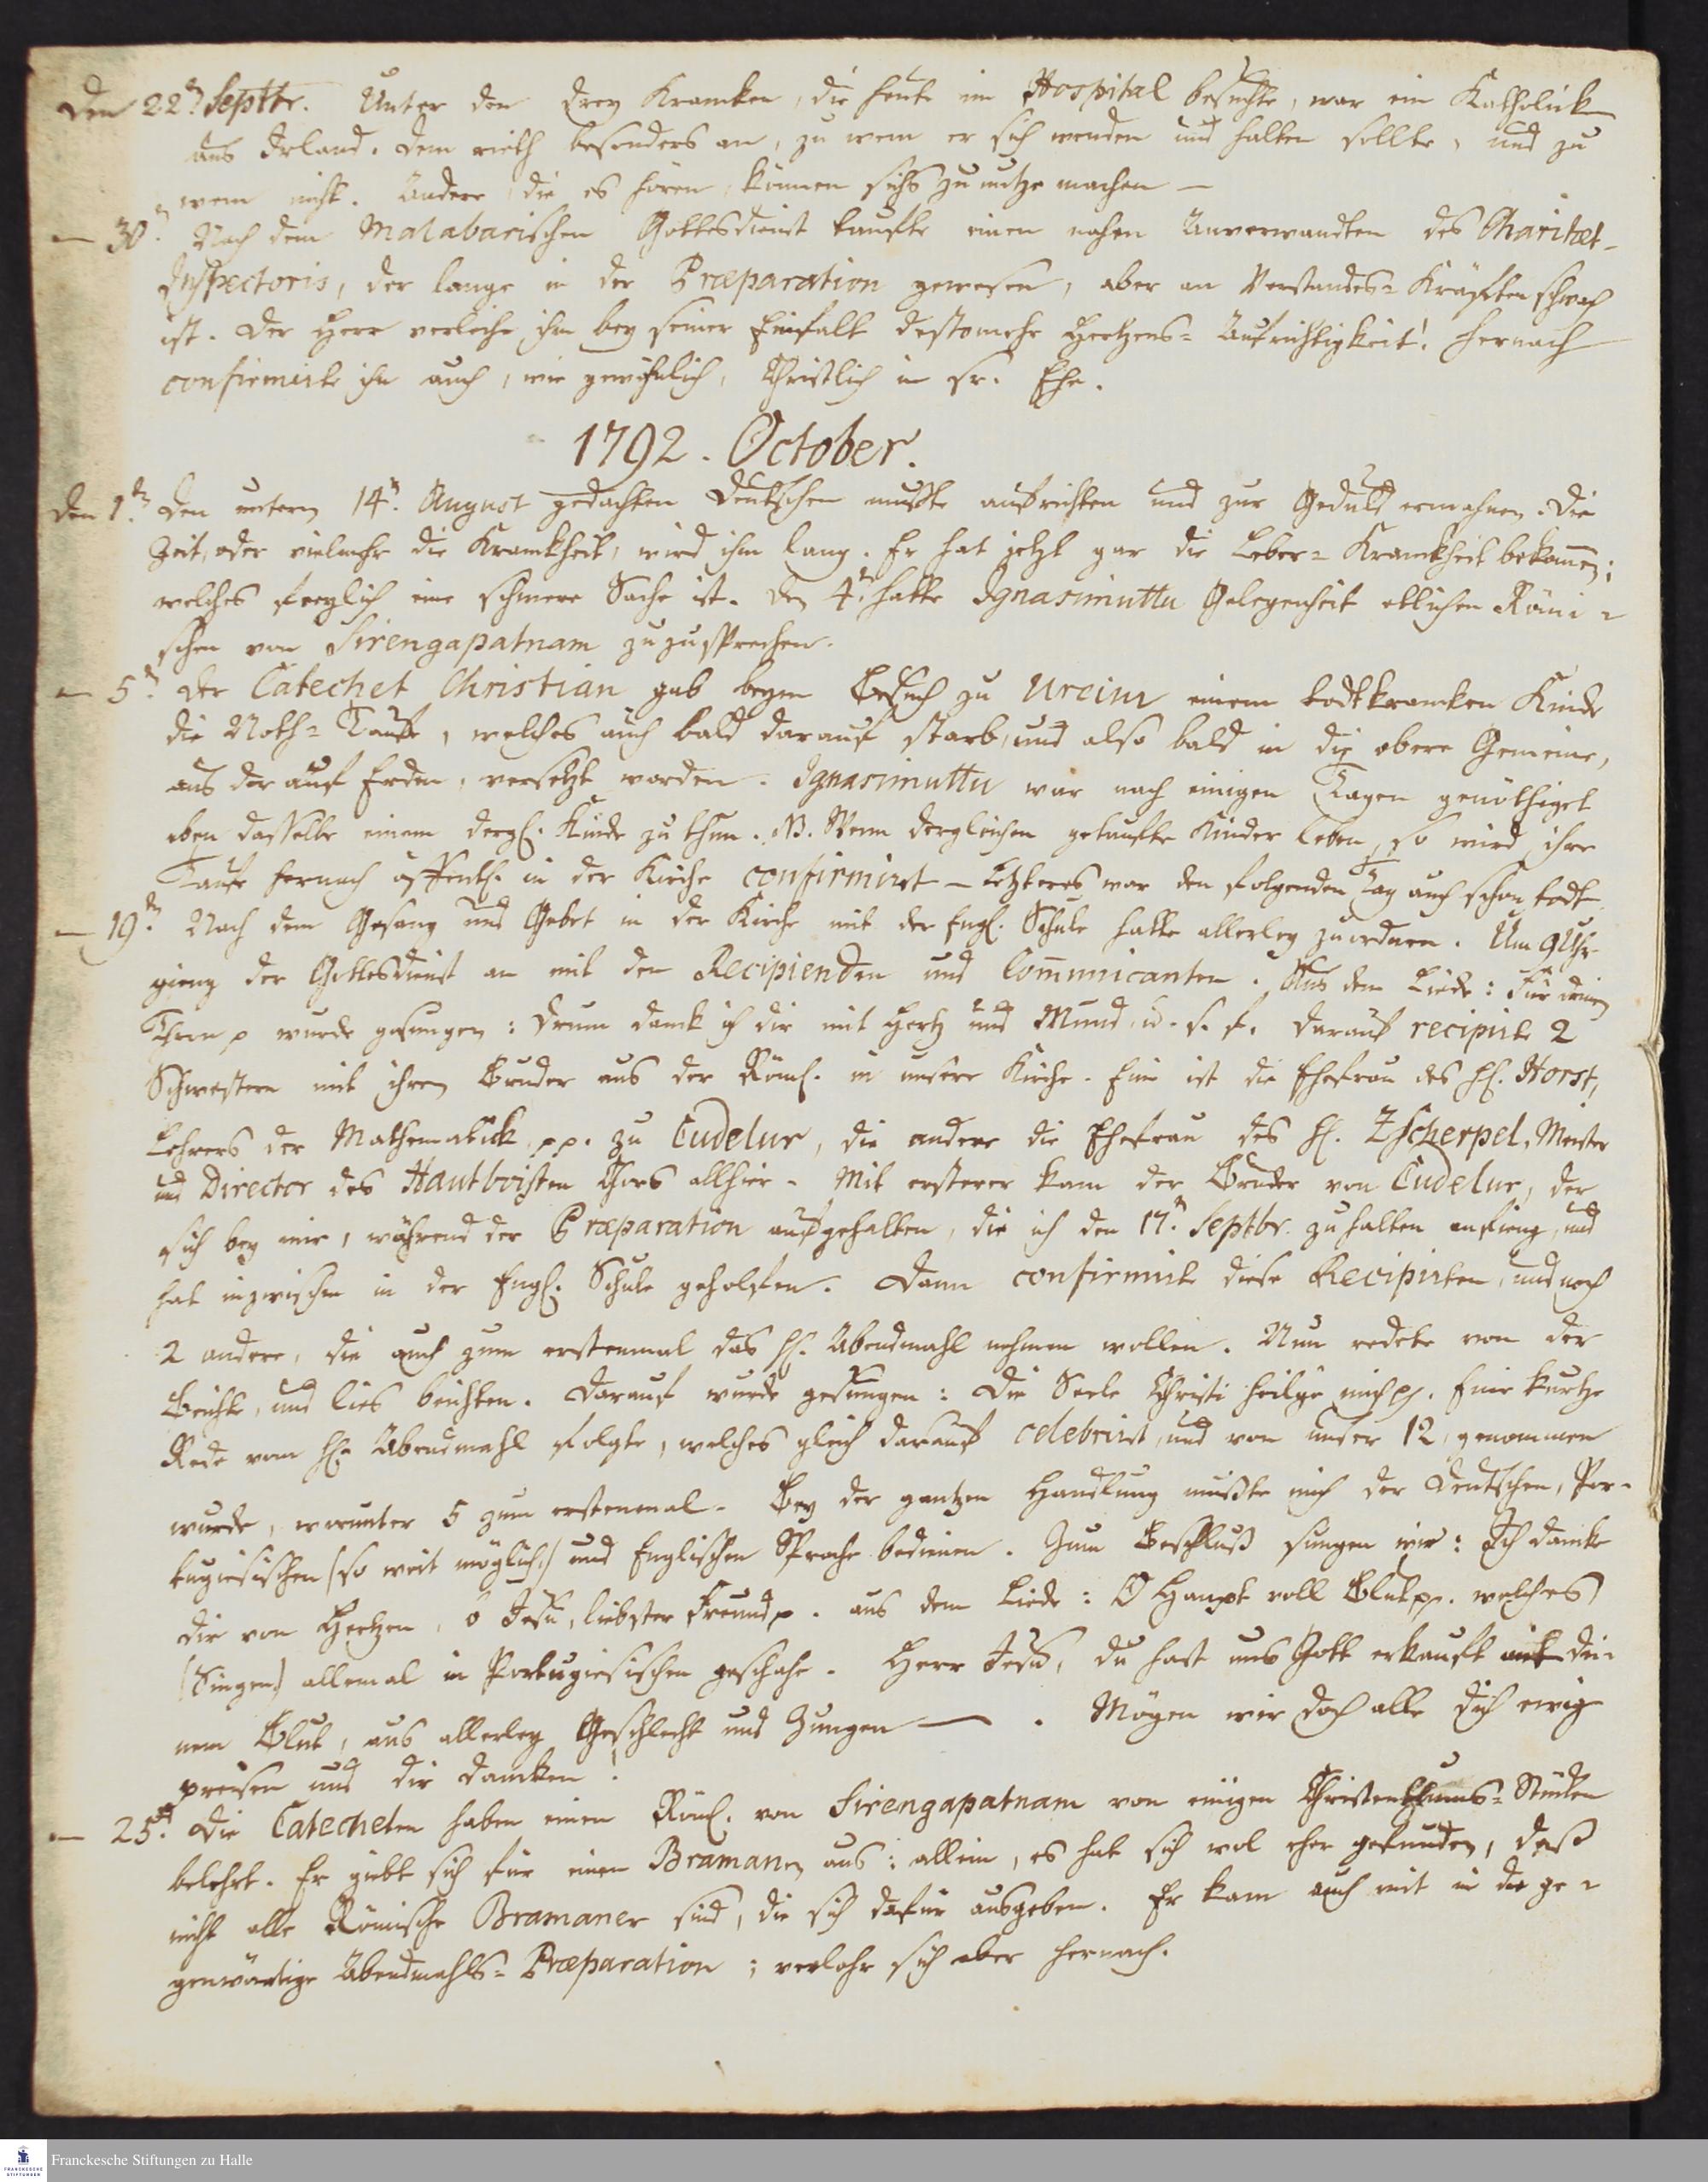 Den 22t. Septbr. Unter den drey Krancken, die heute im Hospital besuchte, war ein Katholick
aus Irland. Dem rieth besonders an, zu wem er sich wenden und halten sollte, und zu
wem nicht. Andere, die es hören, können sichs zu nutze machen —
— 30t. Nach dem Malabarischen Gottesdienst taufte einen nahen Anverwandten des Charitæt-
Inspectoris, der lange in der Præparation gewesen, aber an Verstandes-Kräften schwach
ist. Der Herr verleihe ihm bey seiner Einfalt destomehr Hertzens-Aufrichtigkeit! Hernach
confirmirte ihn auch, wie gewöhnlich, Christlich in sr. Ehe.
1792. October.
Den 1ten Den unterm 14t. August gedachten Deutschen mußte aufrichten und zur Geduld ermahnen. Die
Zeit, oder vielmehr die Kranckheit, wird ihm lang. Er hat jetzt gar die Leber-Kranckheit bekommen;
welches freylich eine schwere Sache ist. Den 4t. hatte Ignasimuttu Gelegenheit etlichen Römi-
schen von Sirengapatnam zuzusprechen.
— 5t. Der Catechet Christian gab beym Besuch zu Ureiur einem todtkrancken Kinde
die Noth-Taufe, welches auch bald darauf starb, und also bald in die obere Gemeine,
aus der auf Erden, versetzt worden. Ignasimuttu war nach einigen Tagen genöthiget
eben dasselbe einem dergl. Kinde zu thun. NB. Wenn dergleichen getaufte Kinder leben, so wird ihre
Taufe hernach öffentl. in der Kirche confirmirt — Letzteres war den folgenden Tag auch schon todt.
— 19ten. Nach dem Gesang und Gebet in der Kirche mit der Engl. Schule hatte allerley zu ordnen. Um 9 Uhr
gieng der Gottesdienst an mit den Recipienden und Communicanten. Aus dem Liede: Für deinen
Thron p wurde gesungen: Drum danck ich dir mit Hertz und Mund, u. s. f. Darauf recipirte 2
Schwestern mit ihrem Bruder aus der Röml. in unsere Kirche. Eine ist die Ehefrau des H. Horst,
Lehrers der Mathematick pp. zu Cudelur, die andere die Ehefrau des H. Zscherpel, Meister
und Director des Hautboisten Chors allhier. Mit ersterer kam der Bruder von Cudelur, der
sich bey mir, während der Præparation aufgehalten, die ich den 17t. Septbr. zu halten anfieng, und
hat inzwischen in der Engl. Schule geholfen. Dann confirmirte diese Recipirten, und noch
2 andere, die auch zum erstenmal das hl. Abendmahl nehmen wollen. Nun redete von der
Beichte, und lies beichten. Darauf wurde gesungen: Die Seele Christi heilge mich p. Eine kurtze
Rede vom hl. Abendmahl folgte, welches gleich darauf celebrirt, und von unser 12, genommen
wurde, worunter 5 zum erstenmal. Bey der gantzen Handlung mußte mich der Deutschen, Por-
tugiesischen (so weit möglich) und Englischen Sprache bedienen. Zum Beschluß sungen wir: Ich dancke
dir von Hertzen, o Jesu, liebster Freund p. aus dem Liede: O Haupt voll Blut pp. welches
(Singen) allemal in Portugiesischen geschahe. Herr Jesu, du hast uns Gott erkauft mit dei-
nem Blut, aus allerley Geschlecht und Zungen — . Mögen wir doch alle dich ewig
preisen und dir dancken!
— 25t. Die Catecheten haben einen Röml. von Sirengapatnam von einigen Christenthums-Stücken
belehrt. Er giebt sich für einen Bramanen aus: allein, es hat sich wol eher gefunden, daß
nicht alle Römische Bramaner sind, die sich dafür ausgeben. Er kam auch mit in die ge-
genwärtige Abendmahls-Præparation; verlohr sich aber hernach.
FRANCKESCHE STIFTUNGEN
Franckesche Stiftungen zu Halle